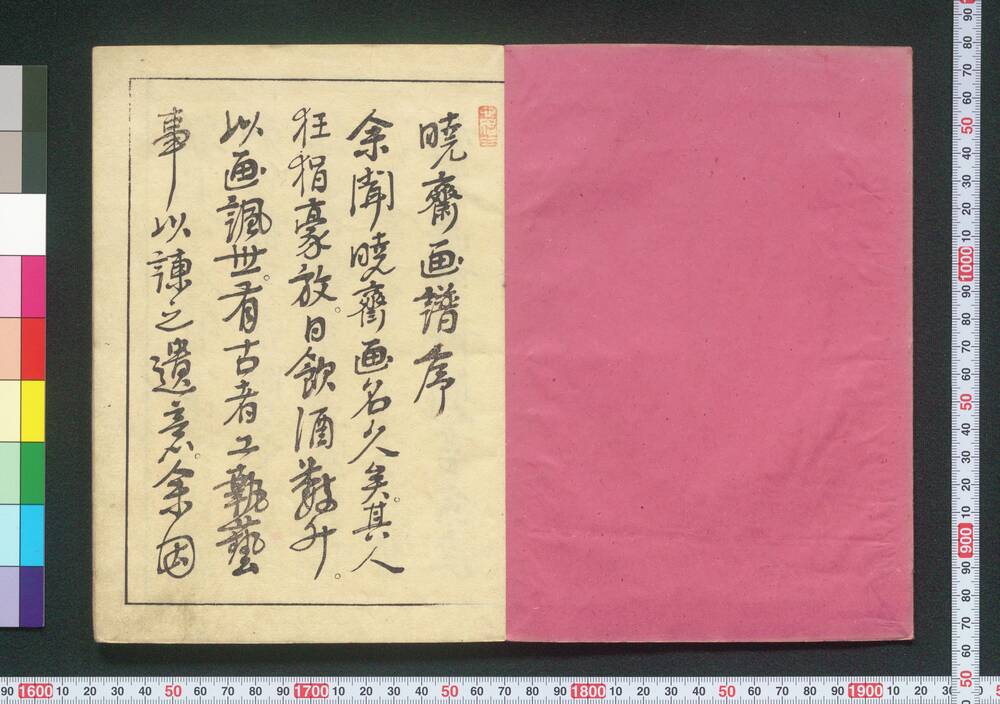 暁齋画譜序
余聞暁齋画名久矣。其人
狂狷豪放。日飲酒數升。
以画諷世。有古者工執藝
事以諫之遺意。余因
90 1600 10 20 30 40 50 60 70 80 90 1700 10 20 30 40 50 60 70 80 90 1800 10 20 30 40 50 60 70 80 90 1900 10 20
90 80 70 60 50 40 30 20 10 1000 90 80 70 60 50 40 30 20 10 900 90 80 70 60 50